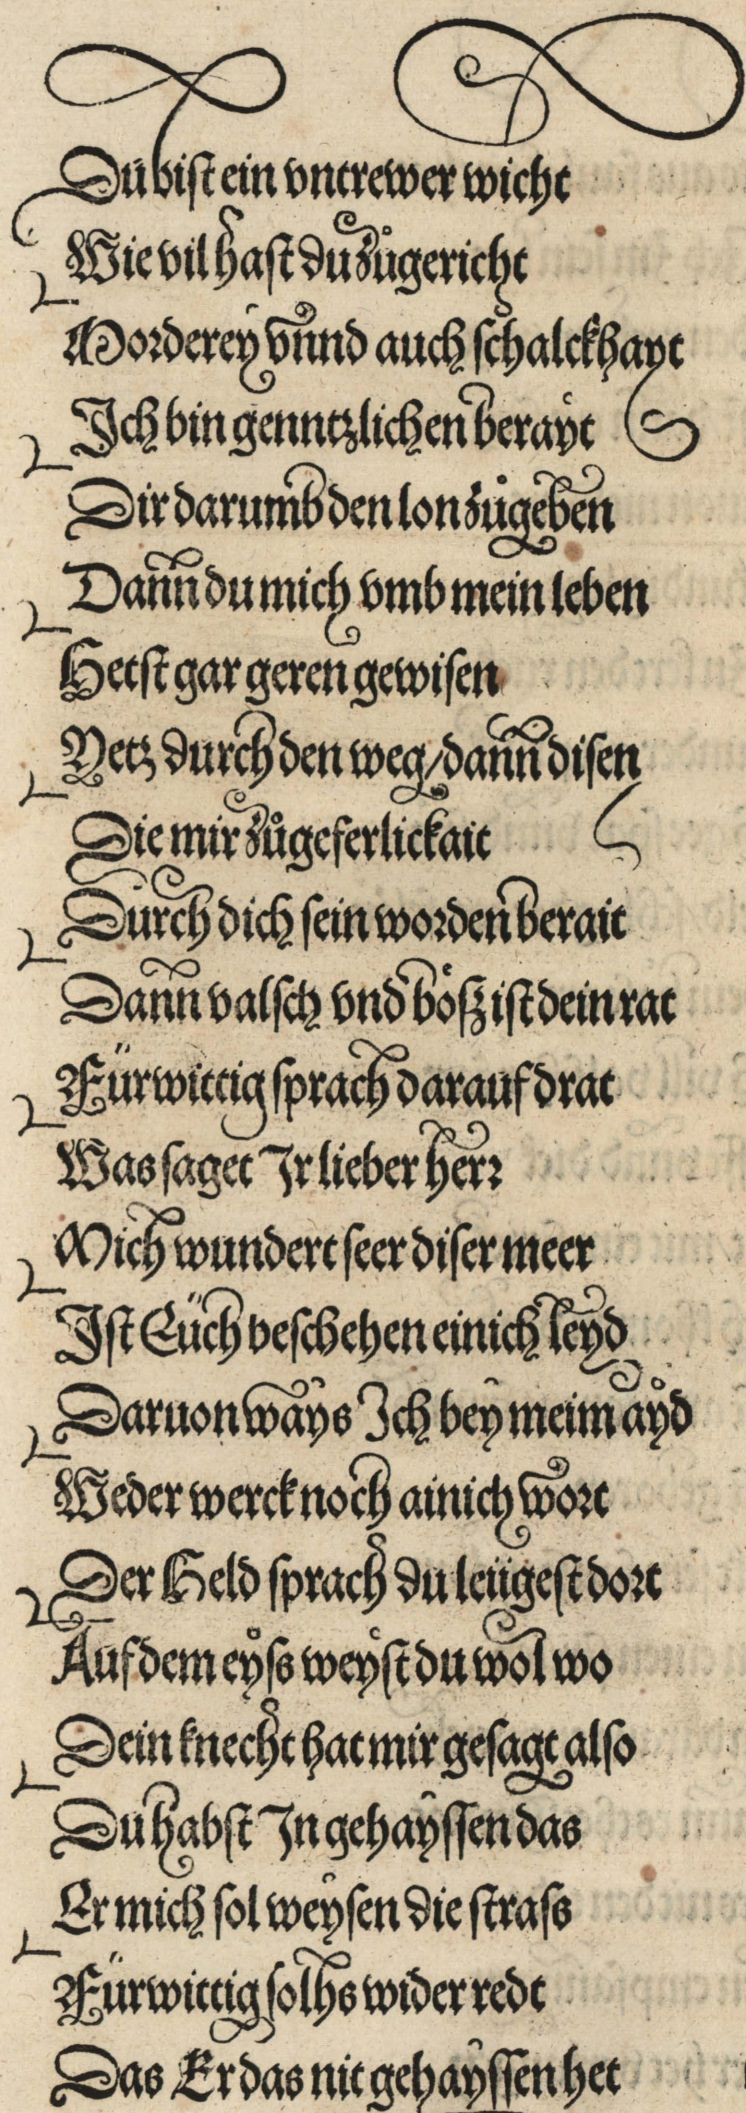 Du bist ein vntrewer wicht
Wie vil hast du zůgericht
Morderey vnnd auch schalckhayt
Ich bin genntzlichen berayt
Dir darumb den lon zůgeben
Dann du mich vmb mein leben
Hetst gar geren gewisen
Yetz durch den weg / dann disen
Die mir zůgeferlickait
Durch dich sein worden berait
Dann valsch vnd bößz ist dein rat
Fürwittig sprach darauf drat
Was saget Ir lieber herr
Mich wundert seer diser meer
Ist Eüch beschehen einich leyd
Daruon ways Ich bey meim ayd
Weder werck noch ainich wort
Der Held sprach du leugest dort
Auf dem eyss weyst du wol wo
Dein knecht hat mir gesagt also
Du habst In gehayssen das
Er mich sol weysen die strass
Fürwittig solhs widerredt
Das Er das nit gehayssen het